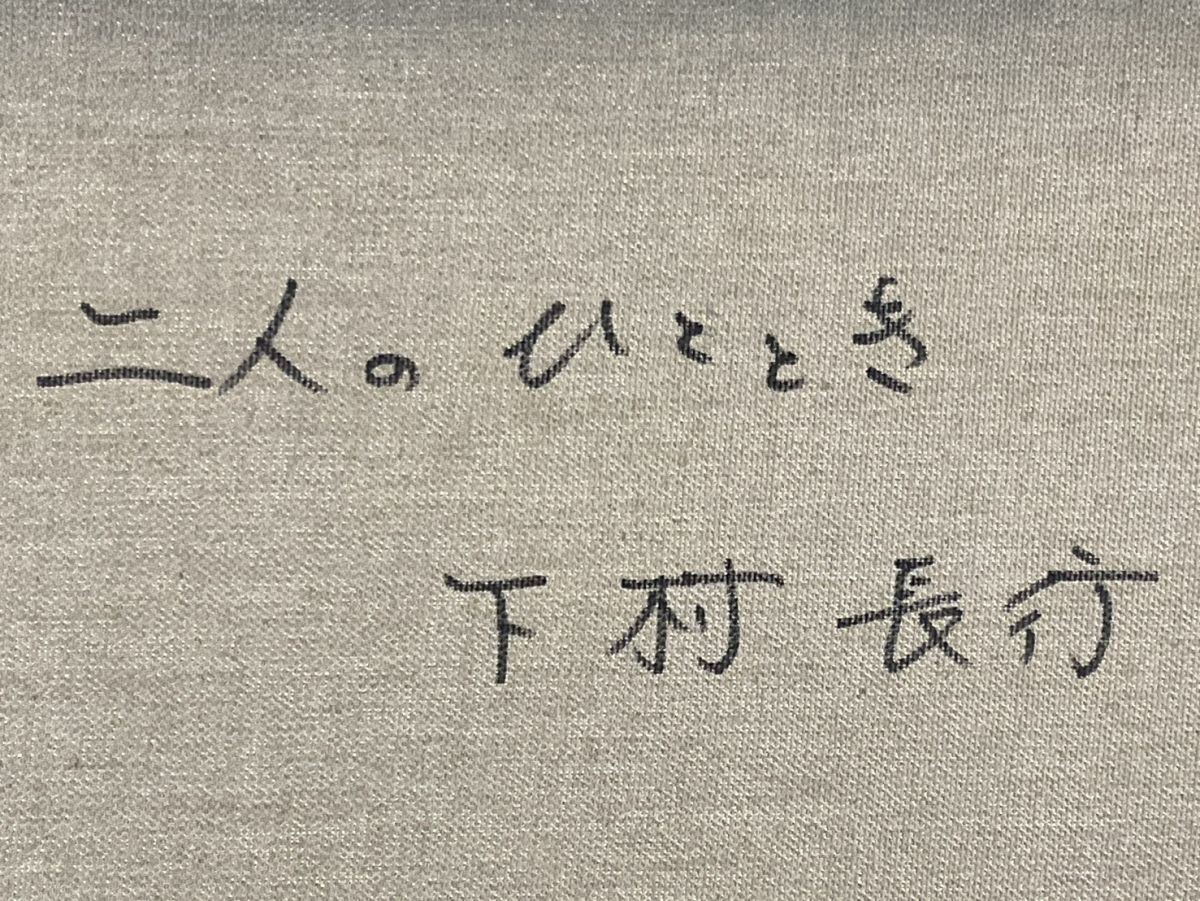 二人のひととき
下村長行